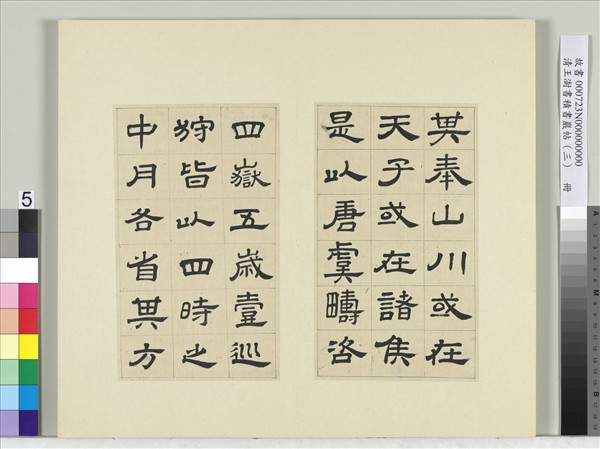 其奉山川或在
天子或在諸侯
是以唐虞疇咨
四嶽五歲壹巡
狩皆以四時之
中月各省其方
故書000723N000000000
清王澍書積書巖帖(三) 冊
5
A
M
B